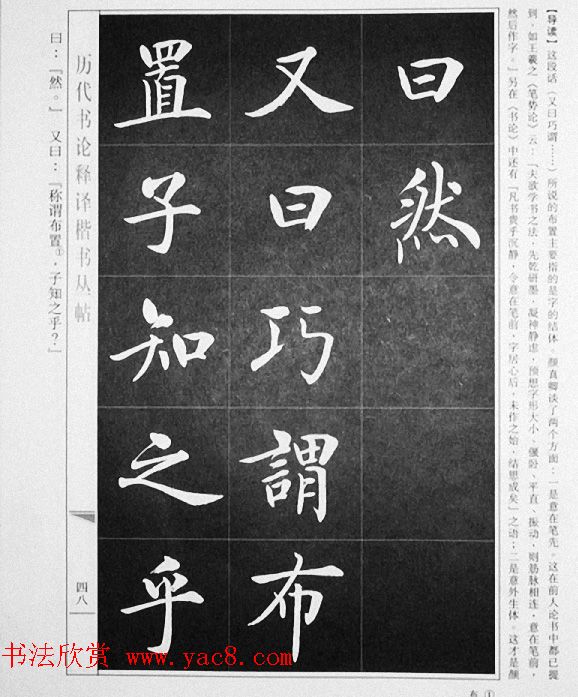 【导读】这段话（又曰巧谓……）所说的布置主要指的是字的结体。颜真卿谈了两个方面：一是意在笔先。这在前人论书中都已提
到，如王羲之《笔势论》云：「夫欲学书之法，先乾研墨，凝神静虑，预想字形大小、偃卧、平直、振动，则筋脉相连，意在笔前，
然后作字。」另在《书论》中还有「凡书贵乎沉静，令意在笔前，字居心后，未作之始，结思成矣」之语；二是意外生体。这才是颜
曰然
又曰巧謂布
置子知之乎
历代书论释译楷书丛帖
四八
曰：「然。」又曰：「称谓布置①，子知之乎？」
①布
书法欣赏 www.yac8.com